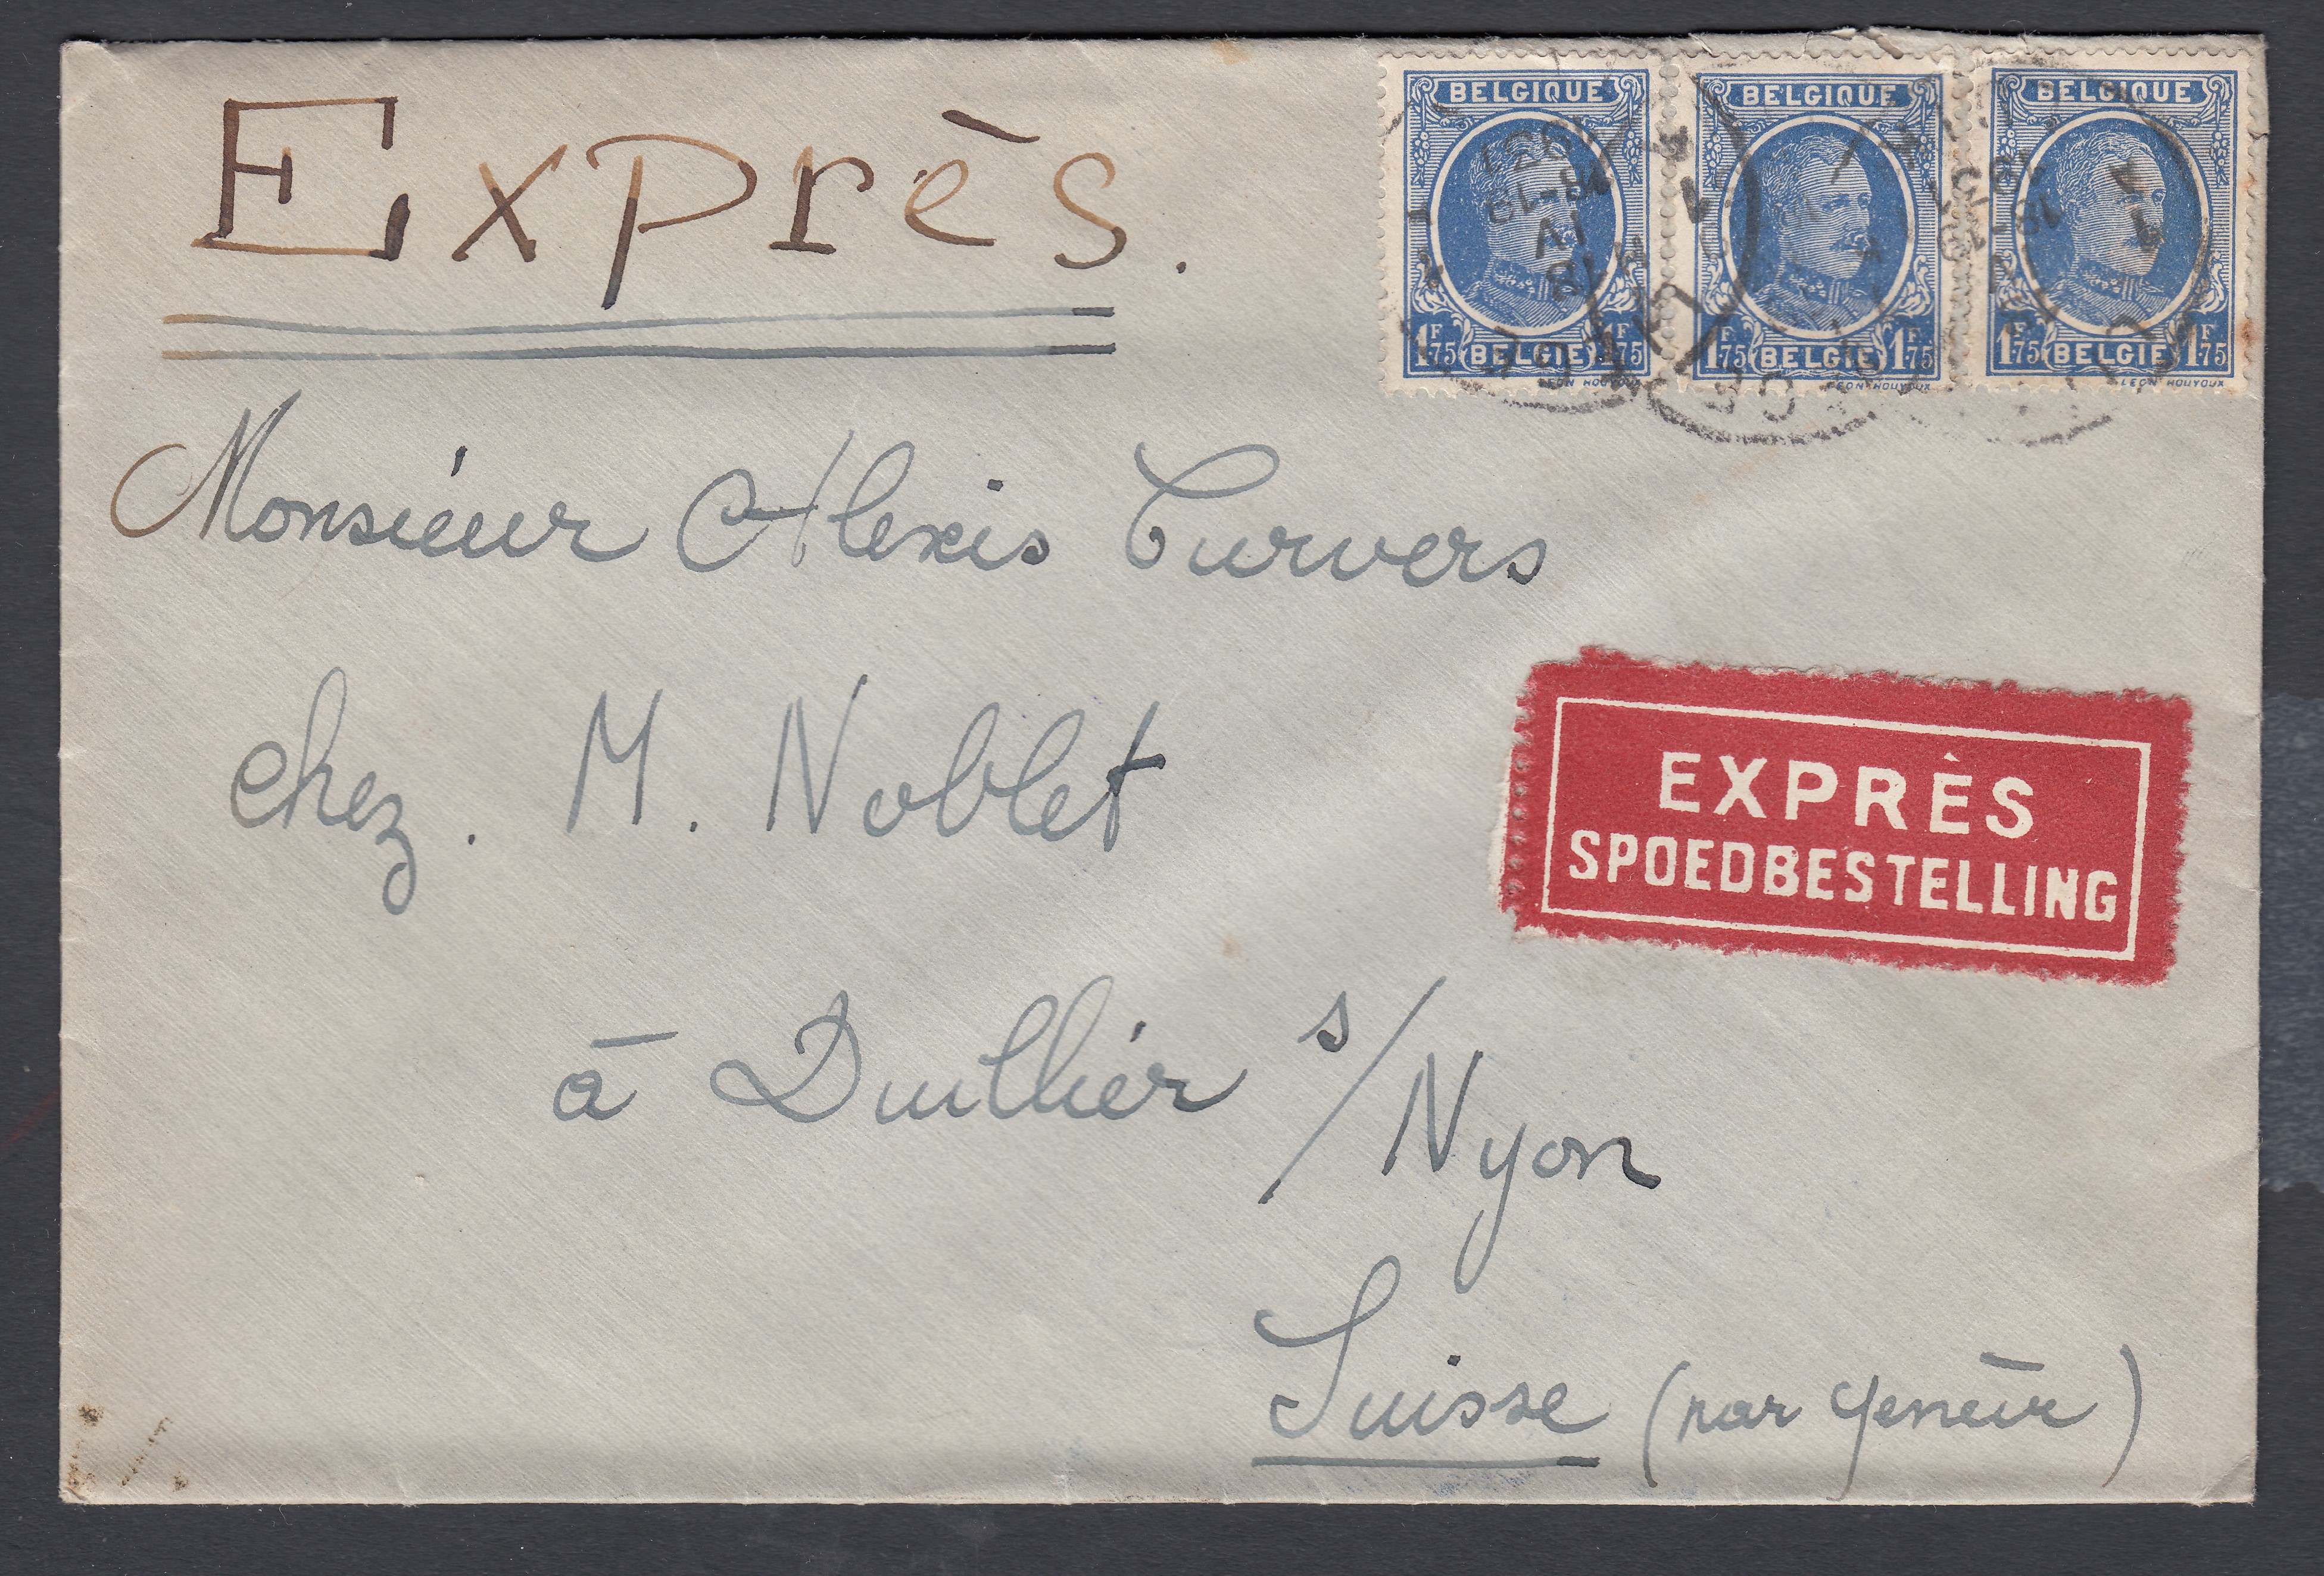 Exprès.
BELGIQUE BELGIQUE BELGIQUE
1F75 BELGIË 1F75 1F75 BELGIË 1F75 1F75 BELGIË 1F75
LEON HOUYOUX LEON HOUYOUX LEON HOUYOUX
18-19
IV
Monsieur Alexis Curvers
chez. M. Noblet
EXPRÈS
SPOEDBESTELLING
à Duillier s/Nyon
Suisse (par Genève)